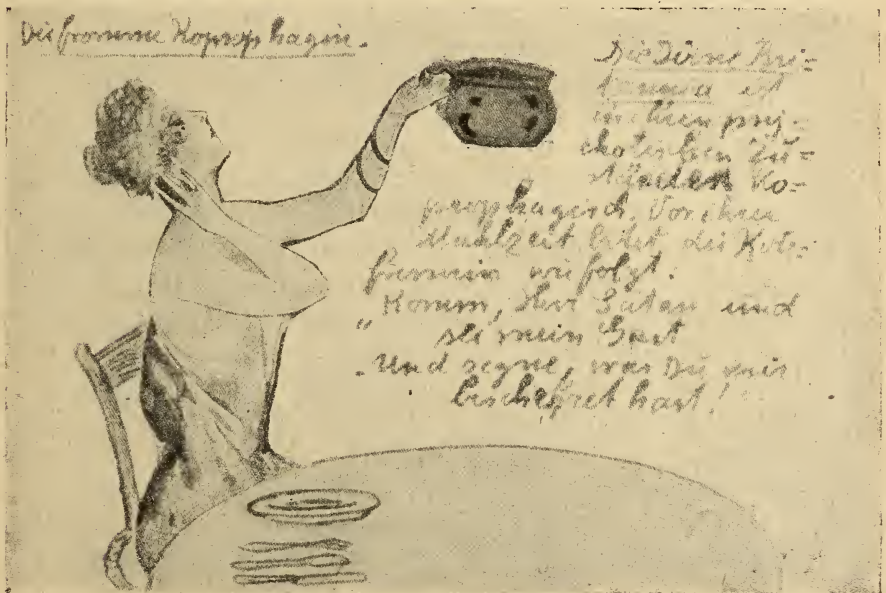 Die fromme Koprophagin.
Die Dirne Bri=
tannia ist
in ihren psy=
chotischen Zu=
ständen Ko=
prophagisch. Vor ihrer
Mahlzeit betet die Kot=
fresserin wie folgt:
"Komm, Herr Satan und
sei mein Gast
Und segne, was Du mir
bescheret hast!